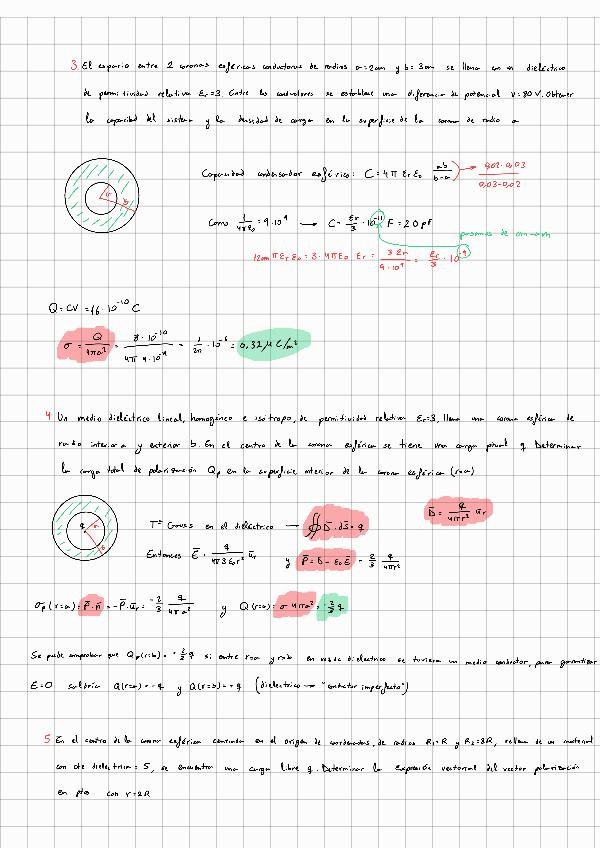 3 El espacio entre 2 coronas esféricas conductoras de radios a=2cm y b=3cm se llena con un dieléctrico
de permitividad relativa Er=3. Entre los conductores se establece una diferencia de potencial V=80V. Obtener
la capacidad del sistema y la densidad de carga en la superficie de la corona de radio a
Capacidad condensador esférico: C=4π Er E0 (ab / b-a) → 0,02·0,03 / 0,03-0,02
a
b
Como 1/4πE0 = 9·10⁹ → C= Er/3 ·10⁻¹¹ F = 20 pF
pasamos de cm→m
12cm π Er E0 = 3·4πE0 Er = 3Er / 9·10⁹ = Er/3 ·10⁻⁹
Q=CV=16·10⁻¹⁰ C
σ = Q/4πa² = 8·10⁻¹⁰ / 4π 4·10⁻⁴ = 1/2π ·10⁻⁶ = 0,32 μC/m²
4 Un medio dieléctrico lineal, homogéneo e isótropo, de permitividad relativa Er=3, llena una corona esférica de
radio interior a y exterior b. En el centro de la corona esférica se tiene una carga ptual q. Determinar
la carga total de polarización Qp en la superficie interior de la corona esférica (r=a)
q
Tª Gauss en el dieléctrico → ∮ D̄·ds̄ = q
D̄ = q/4πr² ūr
Entonces Ē = q/4π3E0r² ūr y P̄ = D̄ - E0Ē = 2/3 q/4πr²
σp (r=a) = P̄·n̄ = -P̄·ūr = -2/3 q/4πa² y Q(r=a) = σ 4πa² = -2/3 q
Se puede comprobar que Qp(r=b) = -2/3 q si entre r=a y r=b en vez de dieléctrico se tuviera un medio conductor, para garantizar
E=0 saldría Q(r=a) = -q y Q(r=b) = +q (dieléctrico → "conductor imperfecto")
5 En el centro de la corona esférica centrada en el origen de coordenadas, de radios R1=R y R2=3R, rellena de un material
con cte dieléctrica = 5, se encuentra una carga libre q. Determinar la expresión vectorial del vector polarización
en ptos con r=2R